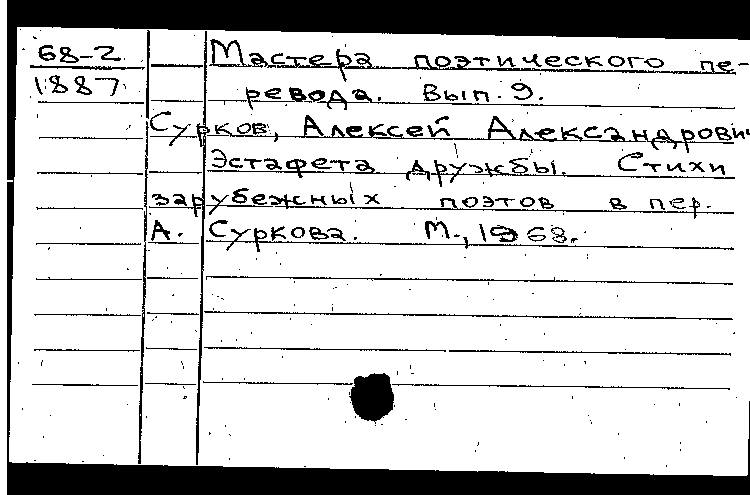 68-2 Мастера поэтического пе-
1887 ревода. Вып. 9.
Сурков, Алексей Александрович
Эстафета дружбы. Стихи
зарубежных поэтов в пер.
А. Суркова. М., 1968.